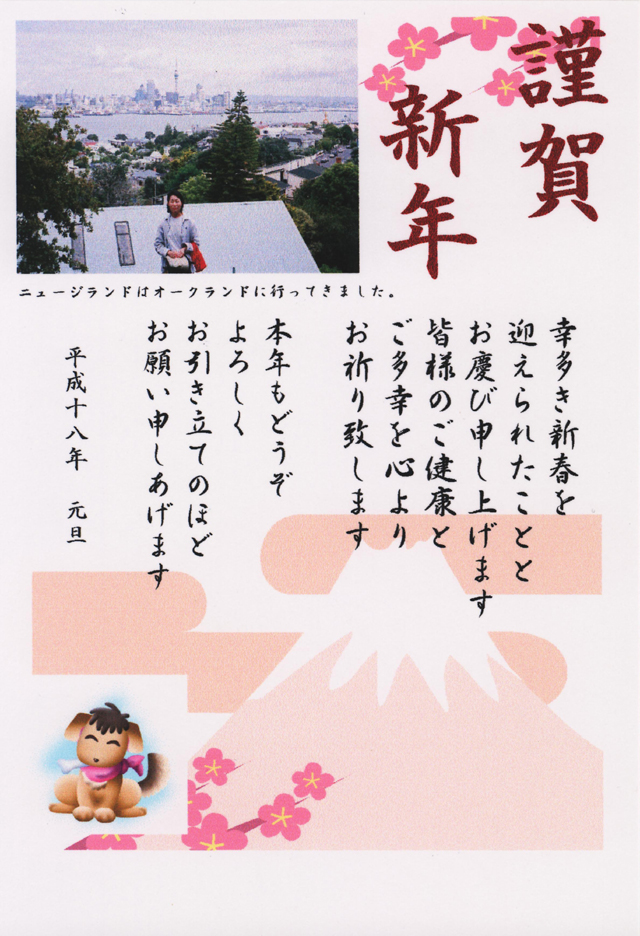 謹賀
新年
ニュージランドはオークランドに行ってきました。
幸多き新春を
迎えられたことと
お慶び申し上げます
皆様のご健康と
ご多幸を心より
お祈り致します
本年もどうぞ
よろしく
お引き立てのほど
お願い申しあげます
平成十八年　元旦